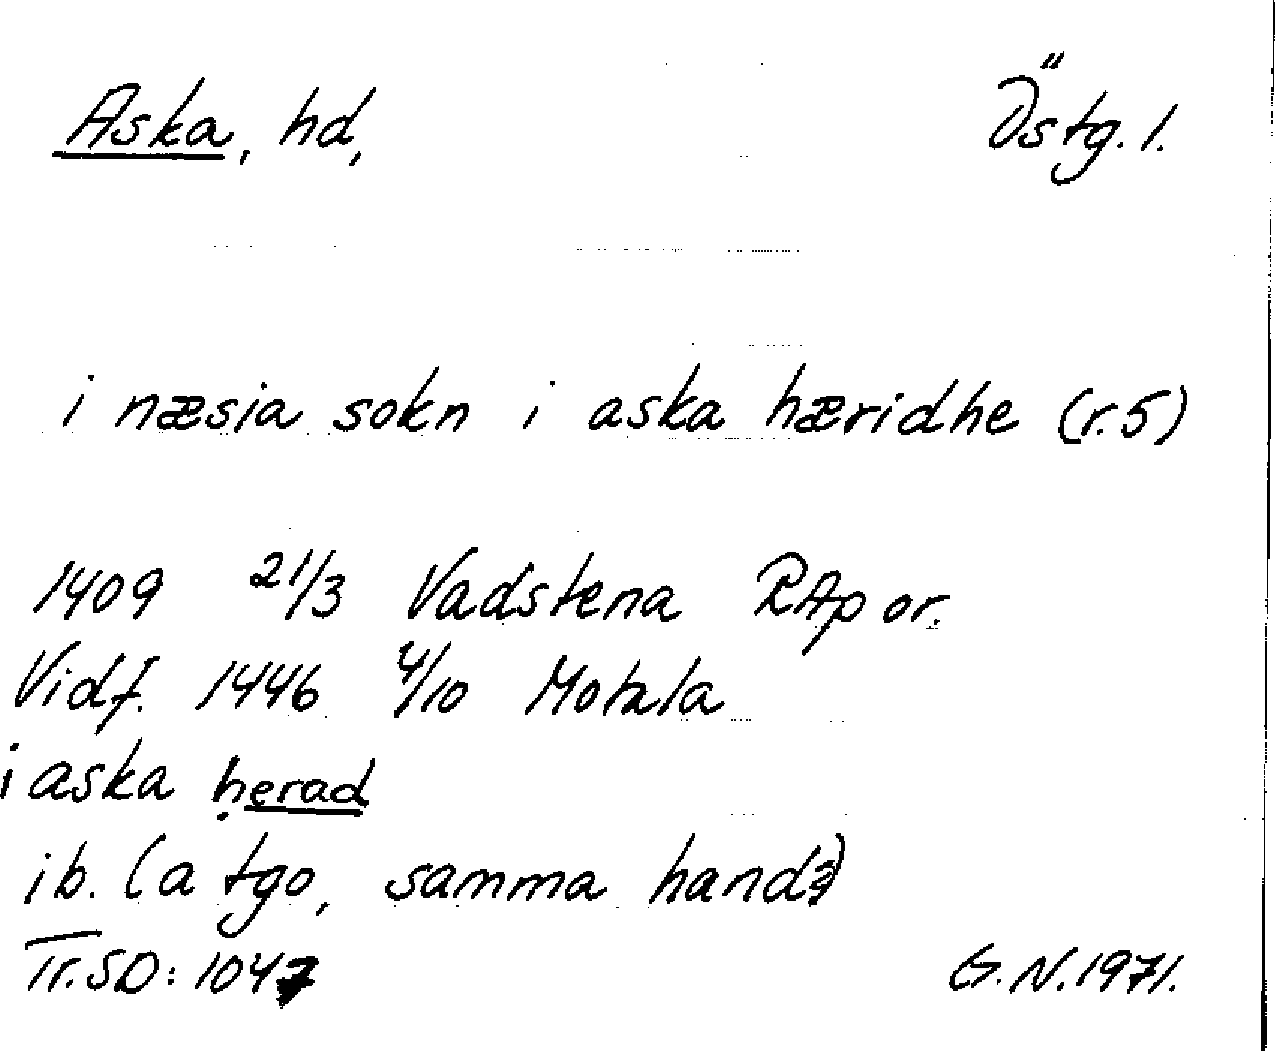 Aska, hd, Östg. l.
i næsia sokn i aska hæridhe (r. 5)
1409 21/3 Vadstena RAp or.
Vidf. 1446 4/10 Motala
i aska herad
ib. (a tgo, samma hand)
Tr. SD: 1047 G. N. 1971.